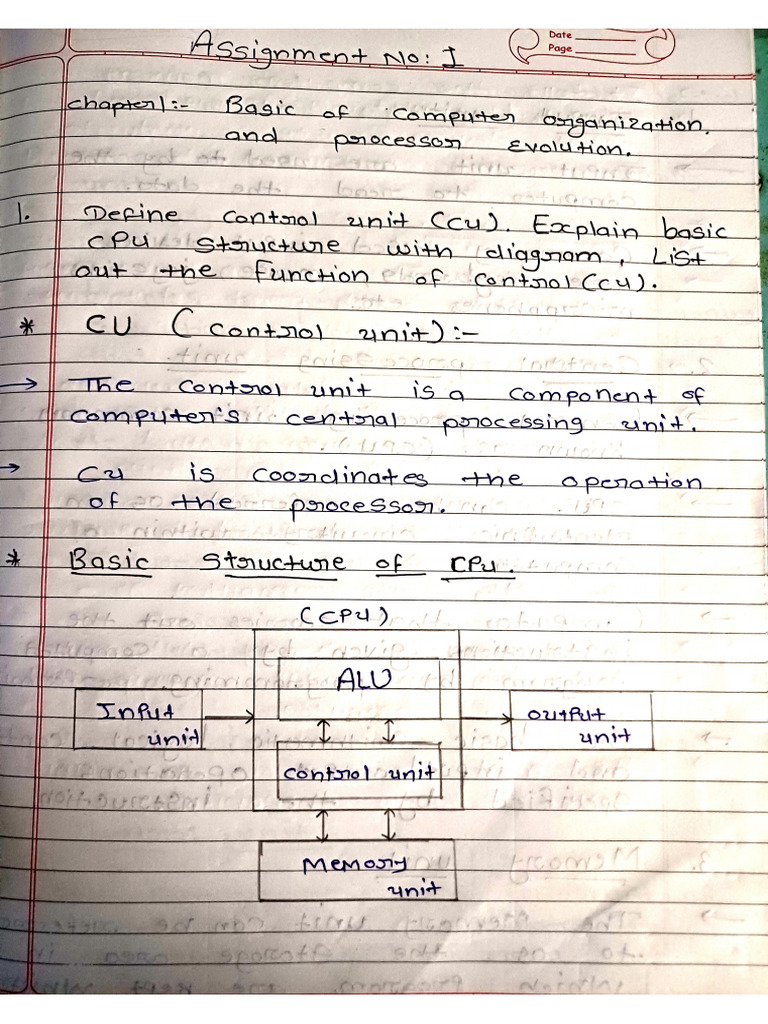 Assignment No: I
Date
Page
chapter1:- Basic of computer organization.
and processor Evolution.
1. Define control unit (cu). Explain basic
CPU structure with diagram, List
out the function of control (cu).
* CU (control unit):-
→ The control unit is a component of
computer's central processing unit.
→ Cu is coordinates the operation
of the processor.
* Basic structure of CPU.
(CPU)
ALU
Input
unit
output
unit
control unit
Memory
unit